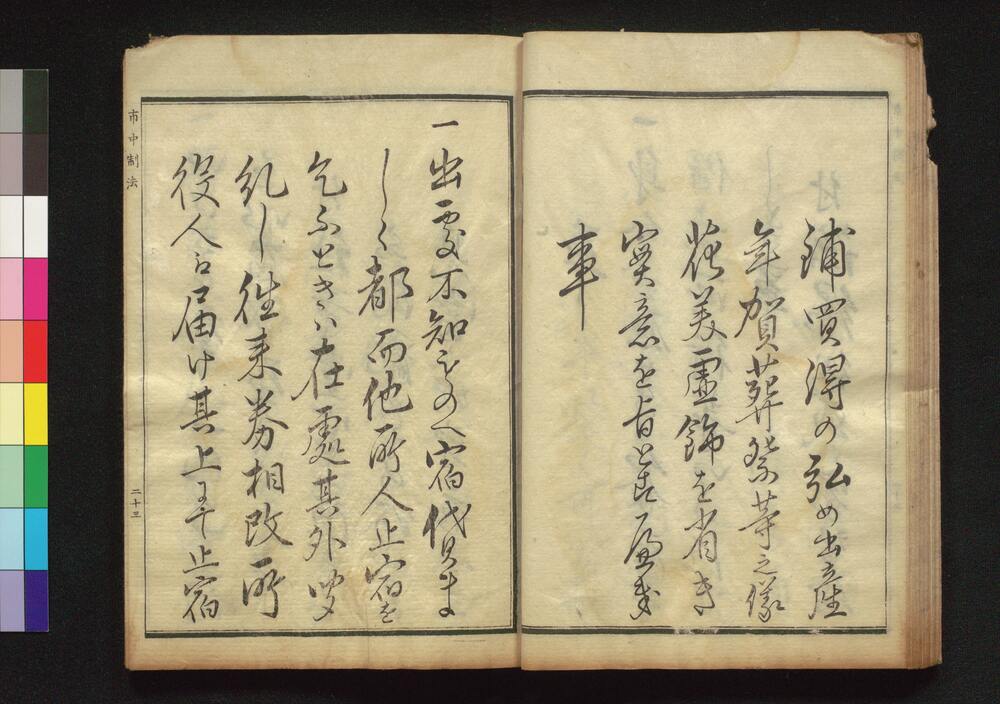 鋪買得の弘め出産
年賀葬祭等之儀
花美虚飾を省き
実意を旨と可為
事
一出処不知ものへ宿貸ま
しく都而他所人止宿を
乞ふときハ在処其外
糺し往来券相改所
役人江届け其上ニ而止宿
市中制法
二十三